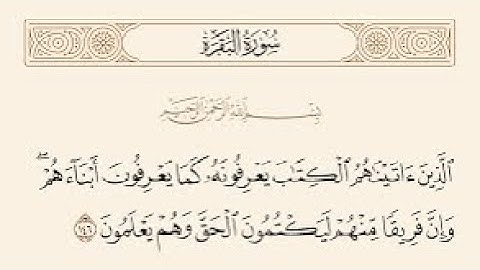 سُورَةُ البَقَرَةِ
بِسْمِ اللَّهِ الرَّحْمَٰنِ الرَّحِيمِ
الَّذِينَ ءَاتَيْنَٰهُمُ الْكِتَٰبَ يَعْرِفُونَهُۥ كَمَا يَعْرِفُونَ أَبْنَآءَهُمْ ۖ
وَإِنَّ فَرِيقًا مِّنْهُمْ لَيَكْتُمُونَ الْحَقَّ وَهُمْ يَعْلَمُونَ ١٤٦